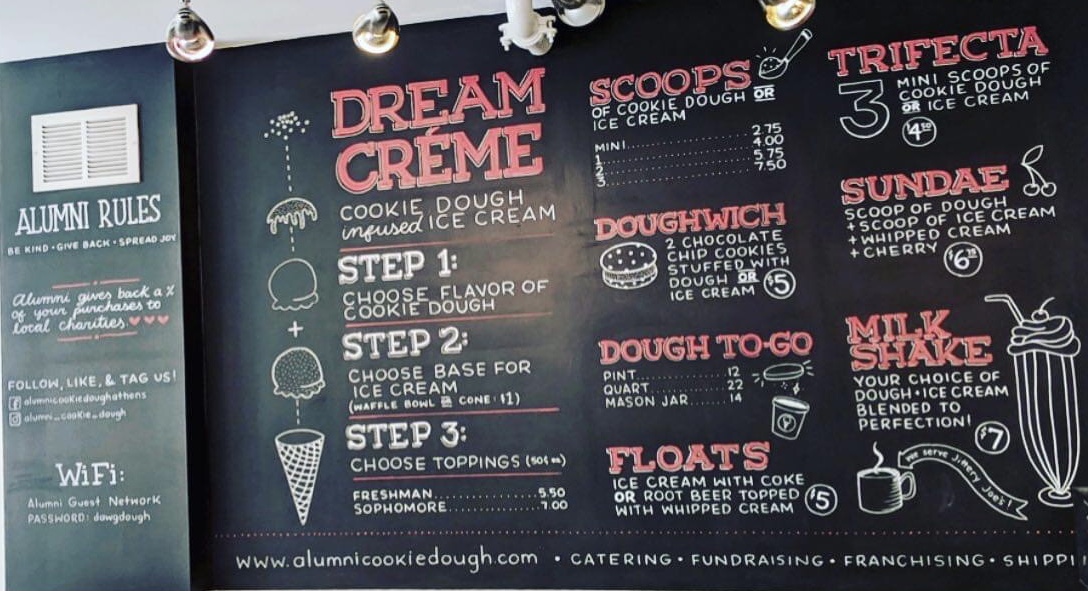 ALUMNI RULES
BE KIND • GIVE BACK • SPREAD JOY
Alumni gives back a %
of your purchases to
local charities.
FOLLOW, LIKE, & TAG US!
alumnicookiedoughathens
alumni_cookie_dough
WiFi:
Alumni Guest Network
PASSWORD: dawgdough
DREAM
CRÉME
COOKIE DOUGH
infused ICE CREAM
STEP 1:
CHOOSE FLAVOR OF
COOKIE DOUGH
STEP 2:
CHOOSE BASE FOR
ICE CREAM
(WAFFLE BOWL OR CONE: $1)
STEP 3:
CHOOSE TOPPINGS (50¢ ea)
FRESHMAN..................5.50
SOPHOMORE................7.00
SCOOPS
OF COOKIE DOUGH OR
ICE CREAM
MINI..................2.75
1..................4.00
2..................5.75
3..................7.50
DOUGHWICH
2 CHOCOLATE
CHIP COOKIES
STUFFED WITH
DOUGH OR
ICE CREAM $5
DOUGH TO-GO
PINT...............12
QUART.............22
MASON JAR.......14
FLOATS
ICE CREAM WITH COKE
OR ROOT BEER TOPPED
WITH WHIPPED CREAM $5
TRIFECTA
3 MINI SCOOPS OF
COOKIE DOUGH
OR ICE CREAM
$4.50
SUNDAE
SCOOP OF DOUGH
+ SCOOP OF ICE CREAM
+ WHIPPED CREAM
+ CHERRY
MILK
SHAKE
YOUR CHOICE OF
DOUGH • ICE CREAM
BLENDED TO
PERFECTION! $7
We serve Jittery Joe's!
www.alumnicookiedough.com • CATERING • FUNDRAISING • FRANCHISING • SHIPPI